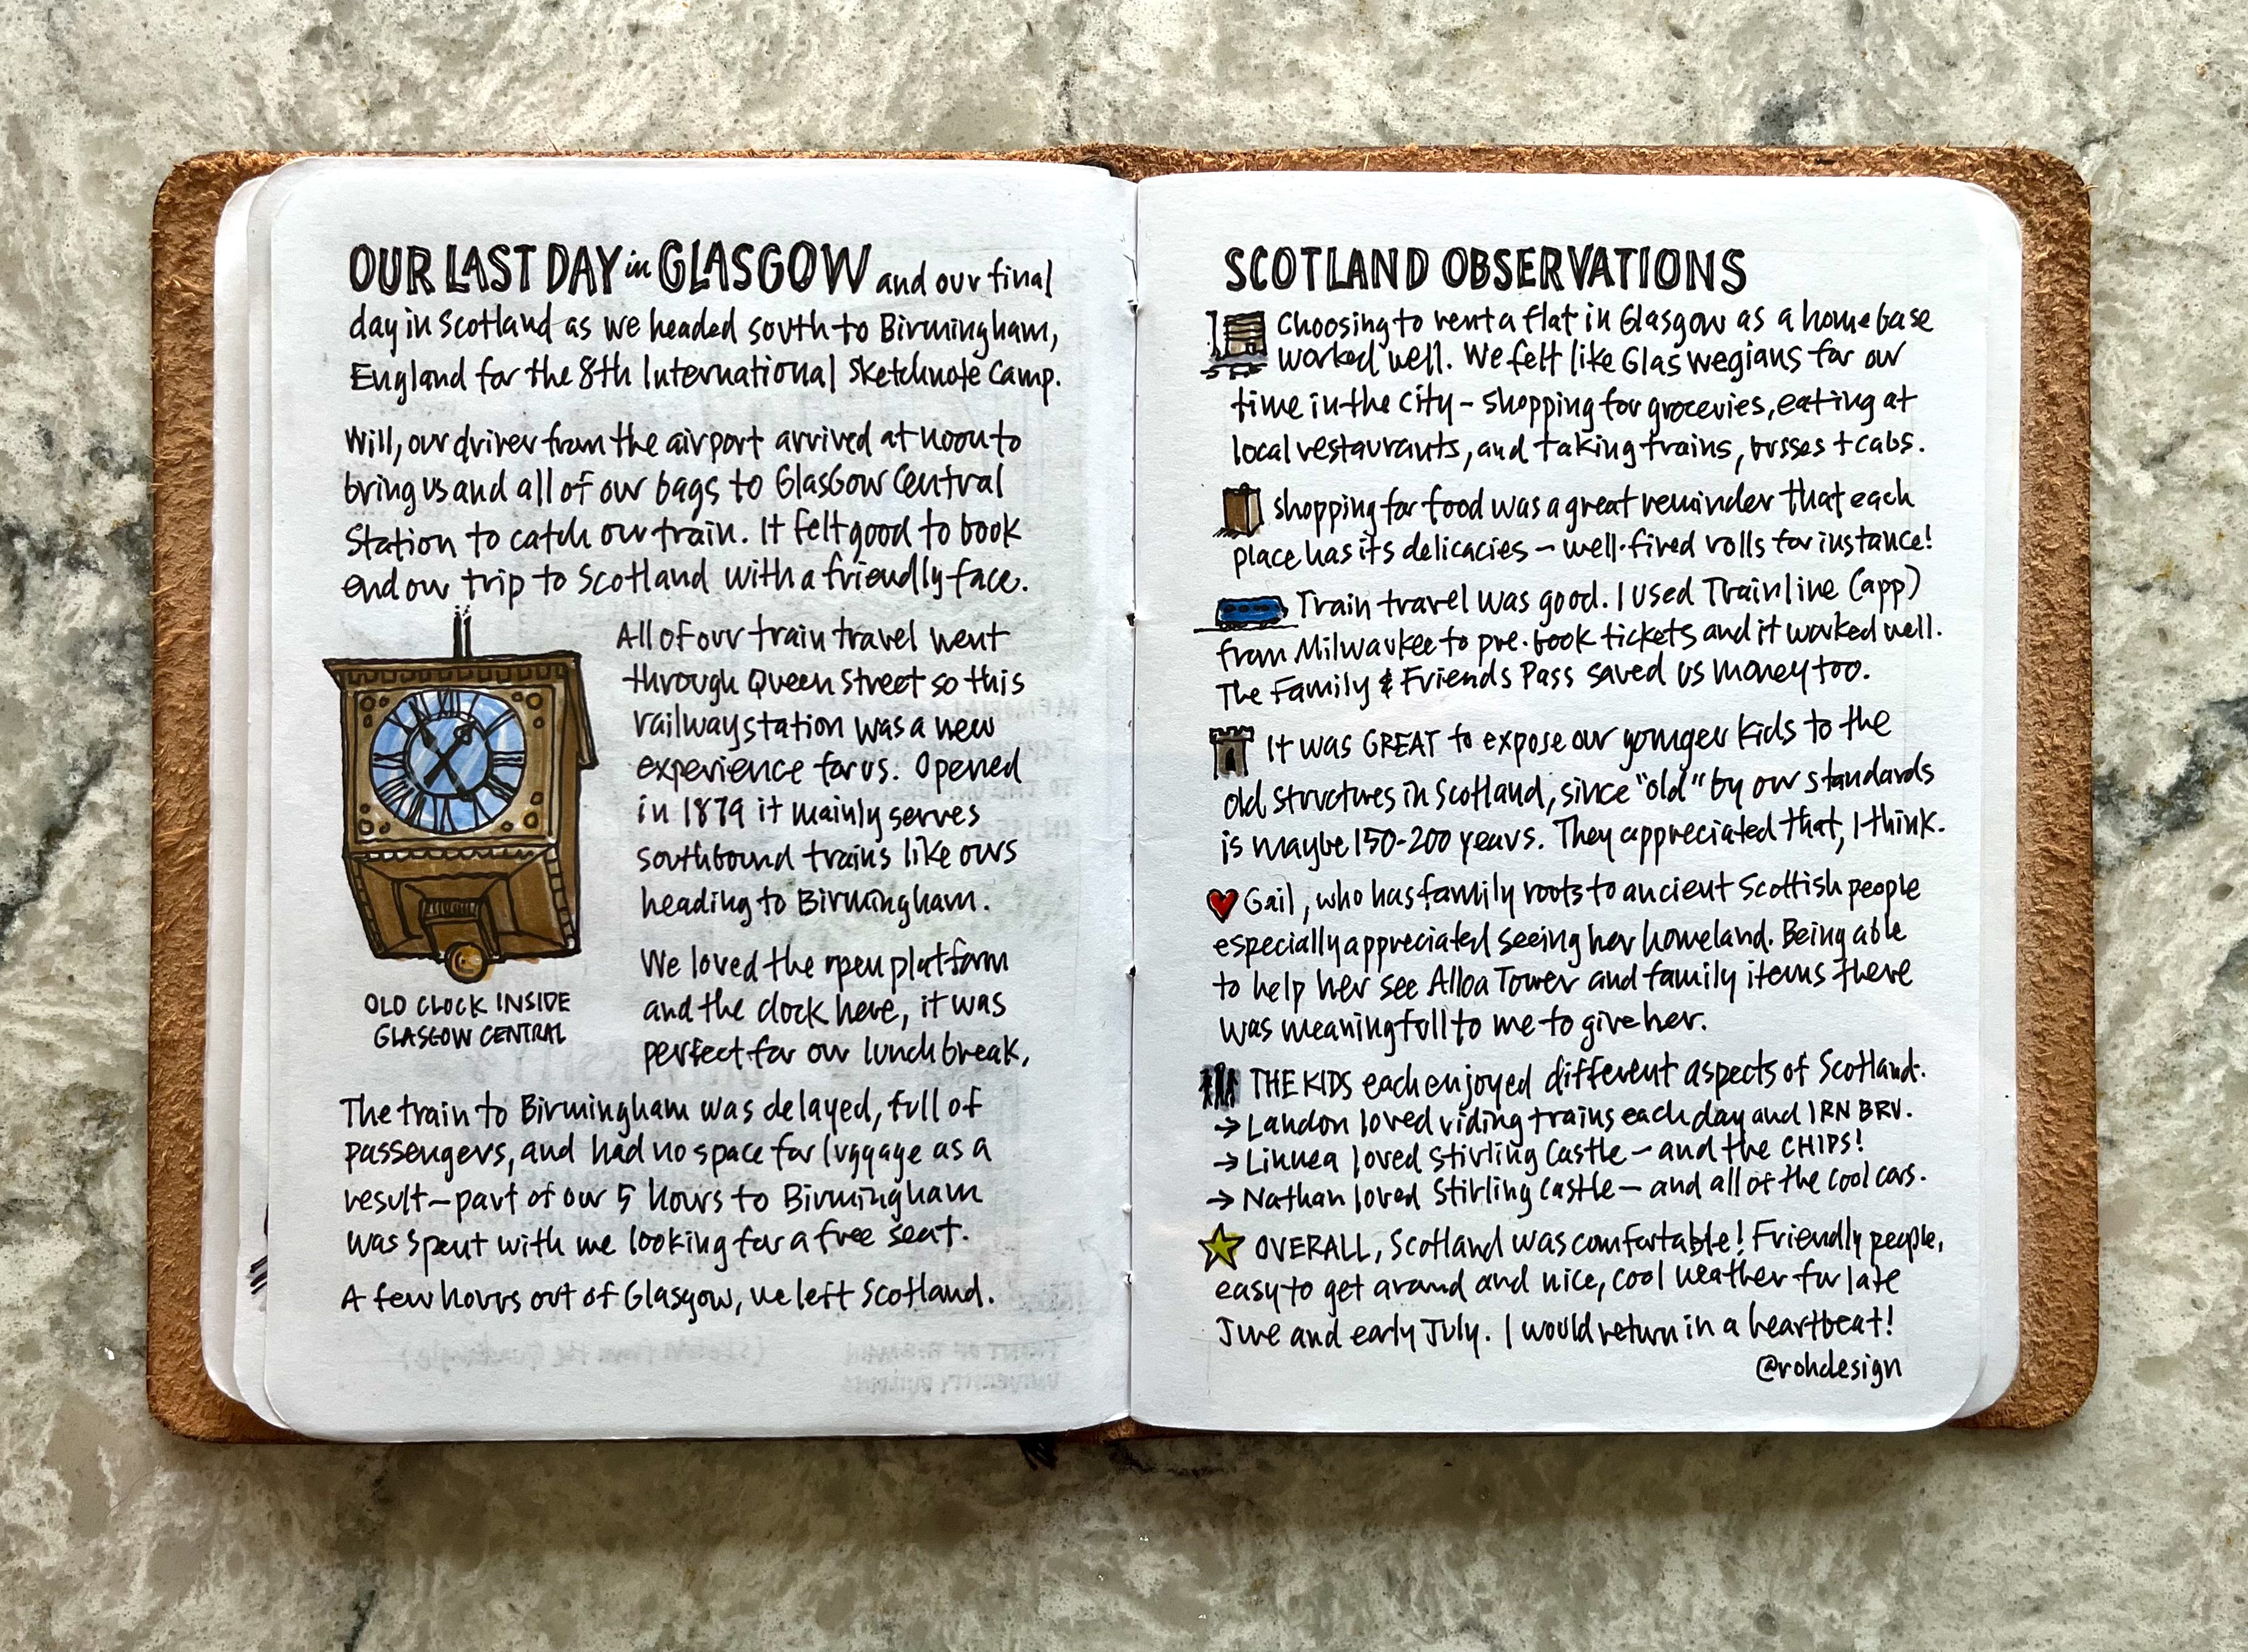 OUR LAST DAY in GLASGOW and our final
day in Scotland as we headed south to Birmingham,
England for the 8th International Sketchnote Camp.
Will, our driver from the airport arrived at noon to
bring us and all of our bags to Glasgow Central
Station to catch our train. It felt good to book
end our trip to Scotland with a friendly face.
All of our train travel went
through Queen Street so this
railway station was a new
experience for us. Opened
in 1879 it mainly serves
southbound trains like ours
heading to Birmingham.
We loved the open platform
and the clock here, it was
perfect for our lunch break,
OLD CLOCK INSIDE
GLASGOW CENTRAL
The train to Birmingham was delayed, full of
passengers, and had no space for luggage as a
result – part of our 5 hours to Birmingham
was spent with me looking for a free seat.
A few hours out of Glasgow, we left Scotland.
SCOTLAND OBSERVATIONS
Choosing to rent a flat in Glasgow as a home base
worked well. We felt like Glaswegians for our
time in the city – shopping for groceries, eating at
local restaurants, and taking trains, busses + cabs.
shopping for food was a great reminder that each
place has its delicacies – well-fired rolls for instance!
Train travel was good. I used Trainline (app)
from Milwaukee to pre-book tickets and it worked well.
The Family & Friends Pass saved us money too.
It was GREAT to expose our younger kids to the
old structures in Scotland, since "old" by our standards
is maybe 150-200 years. They appreciated that, I think.
Gail, who has family roots to ancient Scottish people
especially appreciated seeing her homeland. Being able
to help her see Alloa Tower and family items there
was meaningfull to me to give her.
THE KIDS each enjoyed different aspects of Scotland.
→ Landon loved riding trains each day and IRN BRU.
→ Linnea loved Stirling Castle – and the CHIPS!
→ Nathan loved Stirling Castle – and all of the cool cars.
OVERALL, Scotland was comfortable! Friendly people,
easy to get around and nice, cool weather for late
June and early July. I would return in a heartbeat!
@rohdesign